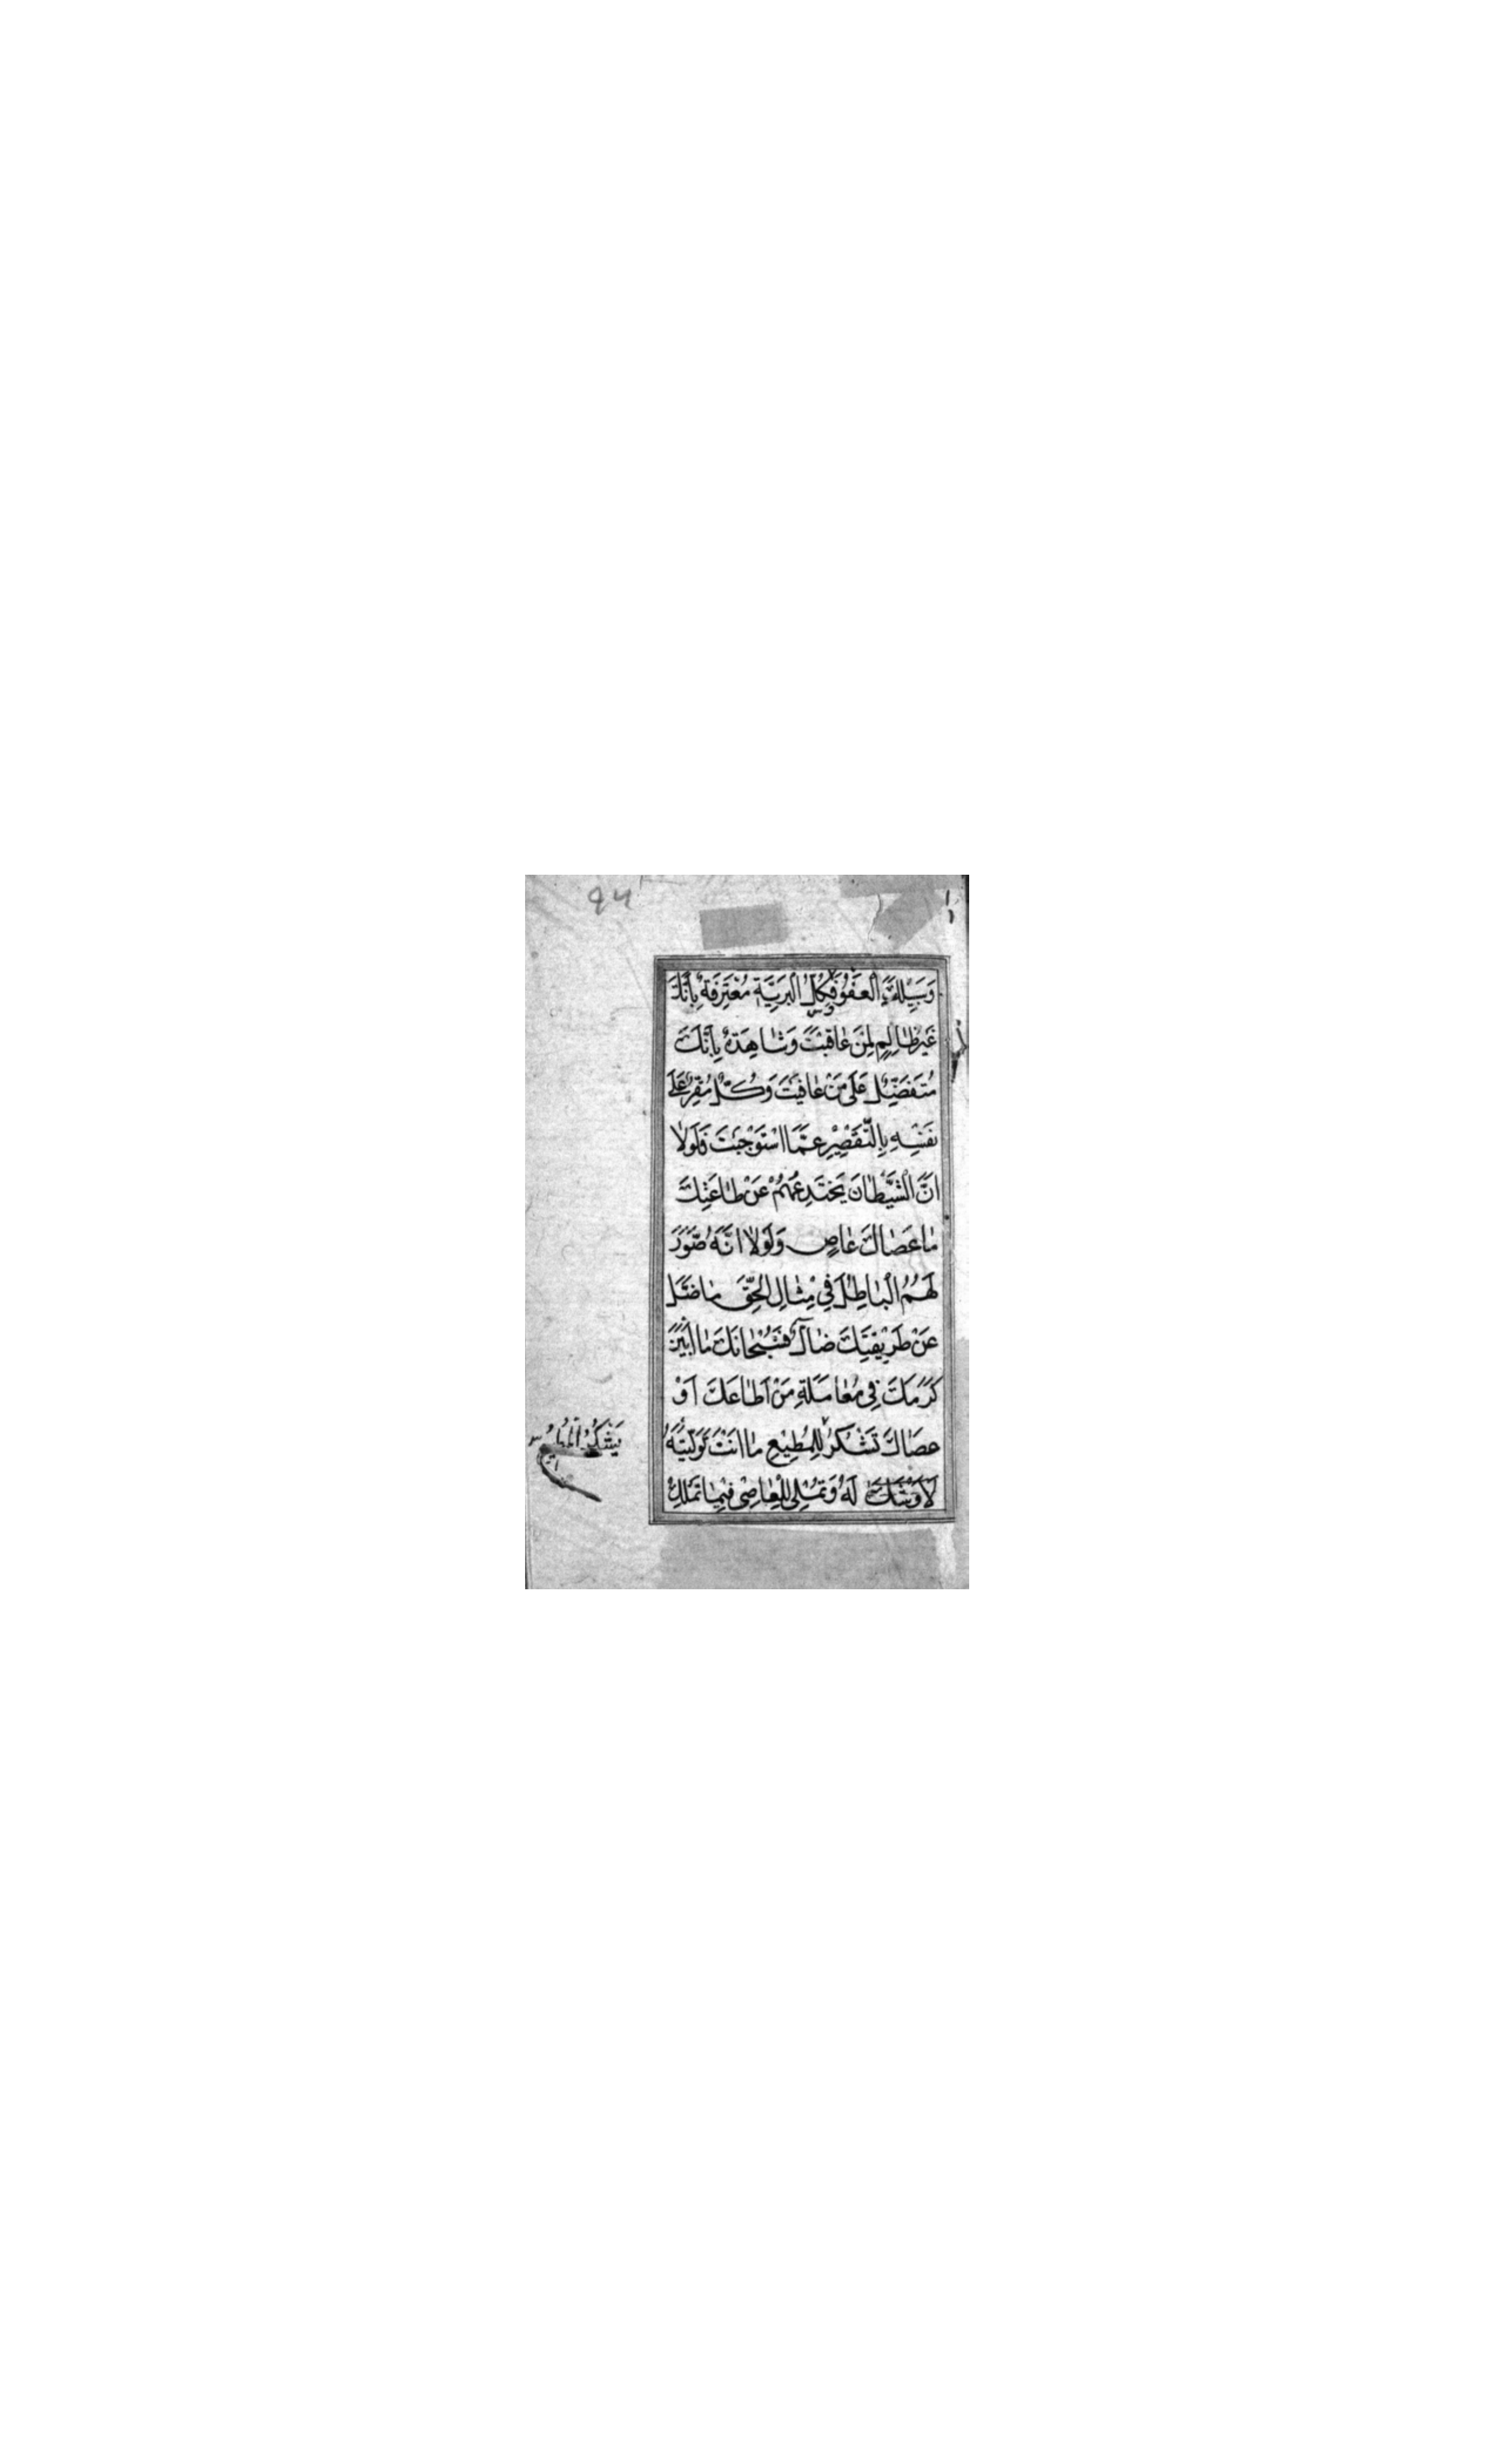 ٩٤
وَسَبِيلُكَ الْعَفْوُ فَكُلُّ الْبَرِيَّةِ مُعْتَرِفَةٌ بِأَنَّكَ
غَيْرُ ظَالِمٍ لِمَنْ عَاقَبْتَ وَشَاهِدَةٌ بِأَنَّكَ
مُتَفَضِّلٌ عَلَى مَنْ عَافَيْتَ وَكُلٌّ مُقِرٌّ عَلَى
نَفْسِهِ بِالتَّقْصِيرِ عَمَّا اسْتَوْجَبْتَ فَلَوْلَا
اَنَّ الشَّيْطَانَ يَخْتَدِعُهُمْ عَنْ طَاعَتِكَ
مَا عَصَاكَ عَاصٍ وَلَوْلَا اَنَّهُ صَوَّرَ
لَهُمُ الْبَاطِلَ فِي مِثَالِ الْحَقِّ مَا ضَلَّ
عَنْ طَرِيقِكَ ضَالٌّ فَسُبْحَانَكَ مَا اَبْيَنَ
كَرَمَكَ فِي مُعَامَلَةِ مَنْ اَطَاعَكَ اَوْ
عَصَاكَ تَشْكُرُ لِلْمُطِيعِ مَا اَنْتَ تَوَلَّيْتَهُ
لَهُ وَتُمْلِي لِلْعَاصِي فِيمَا تَمْلِكُ